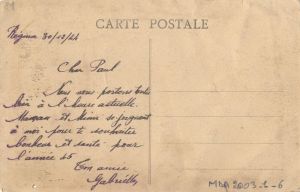 CARTE POSTALE
30/12/44
Cher Paul
Nous nous portons toutes
bien à l'heure actuelle.
Maman et Mimi se joignent
à moi pour te souhaiter
bonheur et santé pour
l'année 45
Ton amie
Gabrielle
MDA 2003-1-6